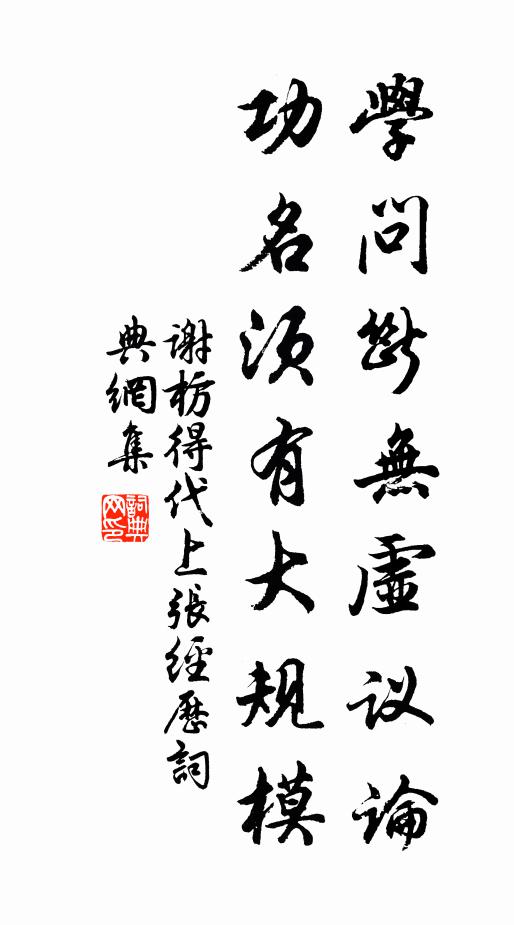 學問斷無虛议論
功名须有大規模
谢枋得代上張經歷詞
典網集
詞典网印